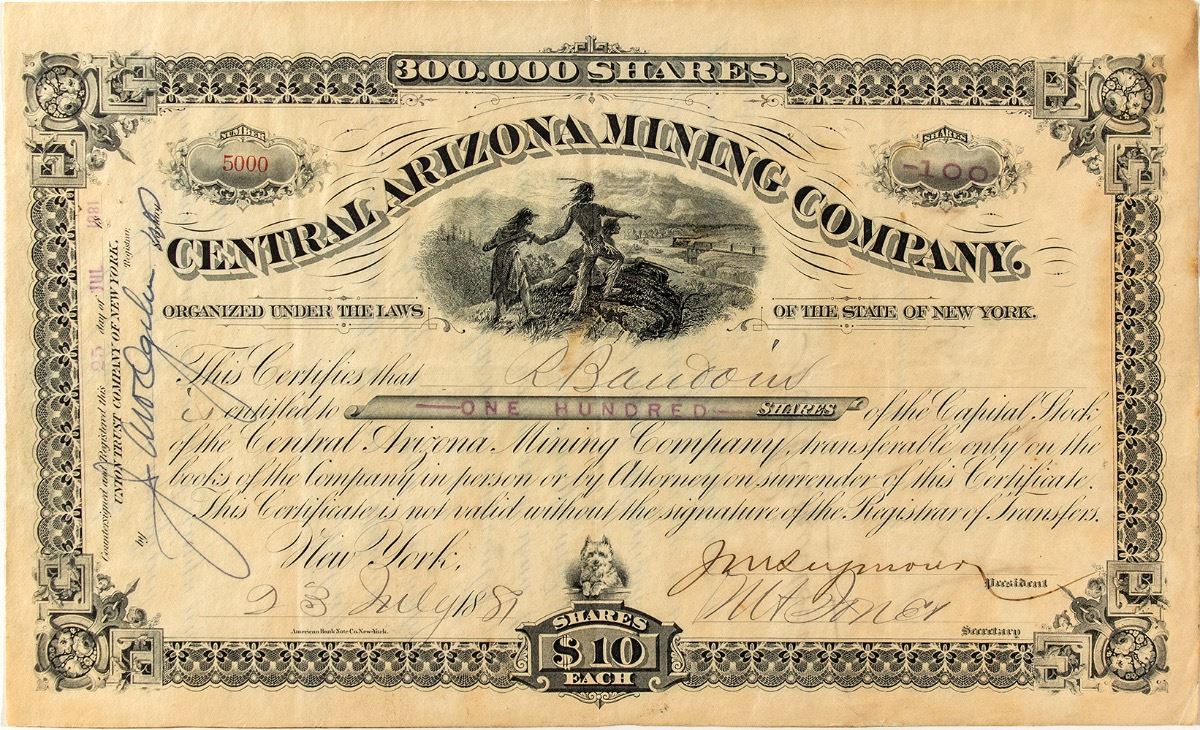 300.000 SHARES.
NUMBER
5000
SHARES
-100
CENTRAL ARIZONA MINING COMPANY.
ORGANIZED UNDER THE LAWS OF THE STATE OF NEW YORK.
This Certifies that R Baudouin
is entitled to —ONE HUNDRED— SHARES of the Capital Stock
of the Central Arizona Mining Company, transferable only on the
books of the Company in person or by Attorney on surrender of this Certificate.
This Certificate is not valid without the signature of the Registrar of Transfers.
New York,
23 July 1881
JM Seymour
President
Secretary
American Bank Note Co. New-York.
SHARES
$10
EACH
Countersigned and Registered this 25 day of JUL 1881
UNION TRUST COMPANY OF NEW YORK.
Registrar.
by